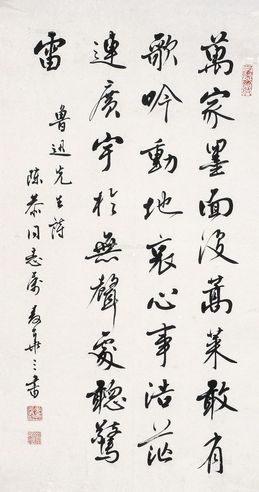 萬家墨面没蒿萊敢有
歌吟動地哀心事浩茫
連廣宇於無聲處聽驚
雷
魯迅先生詩
陳恭同志屬